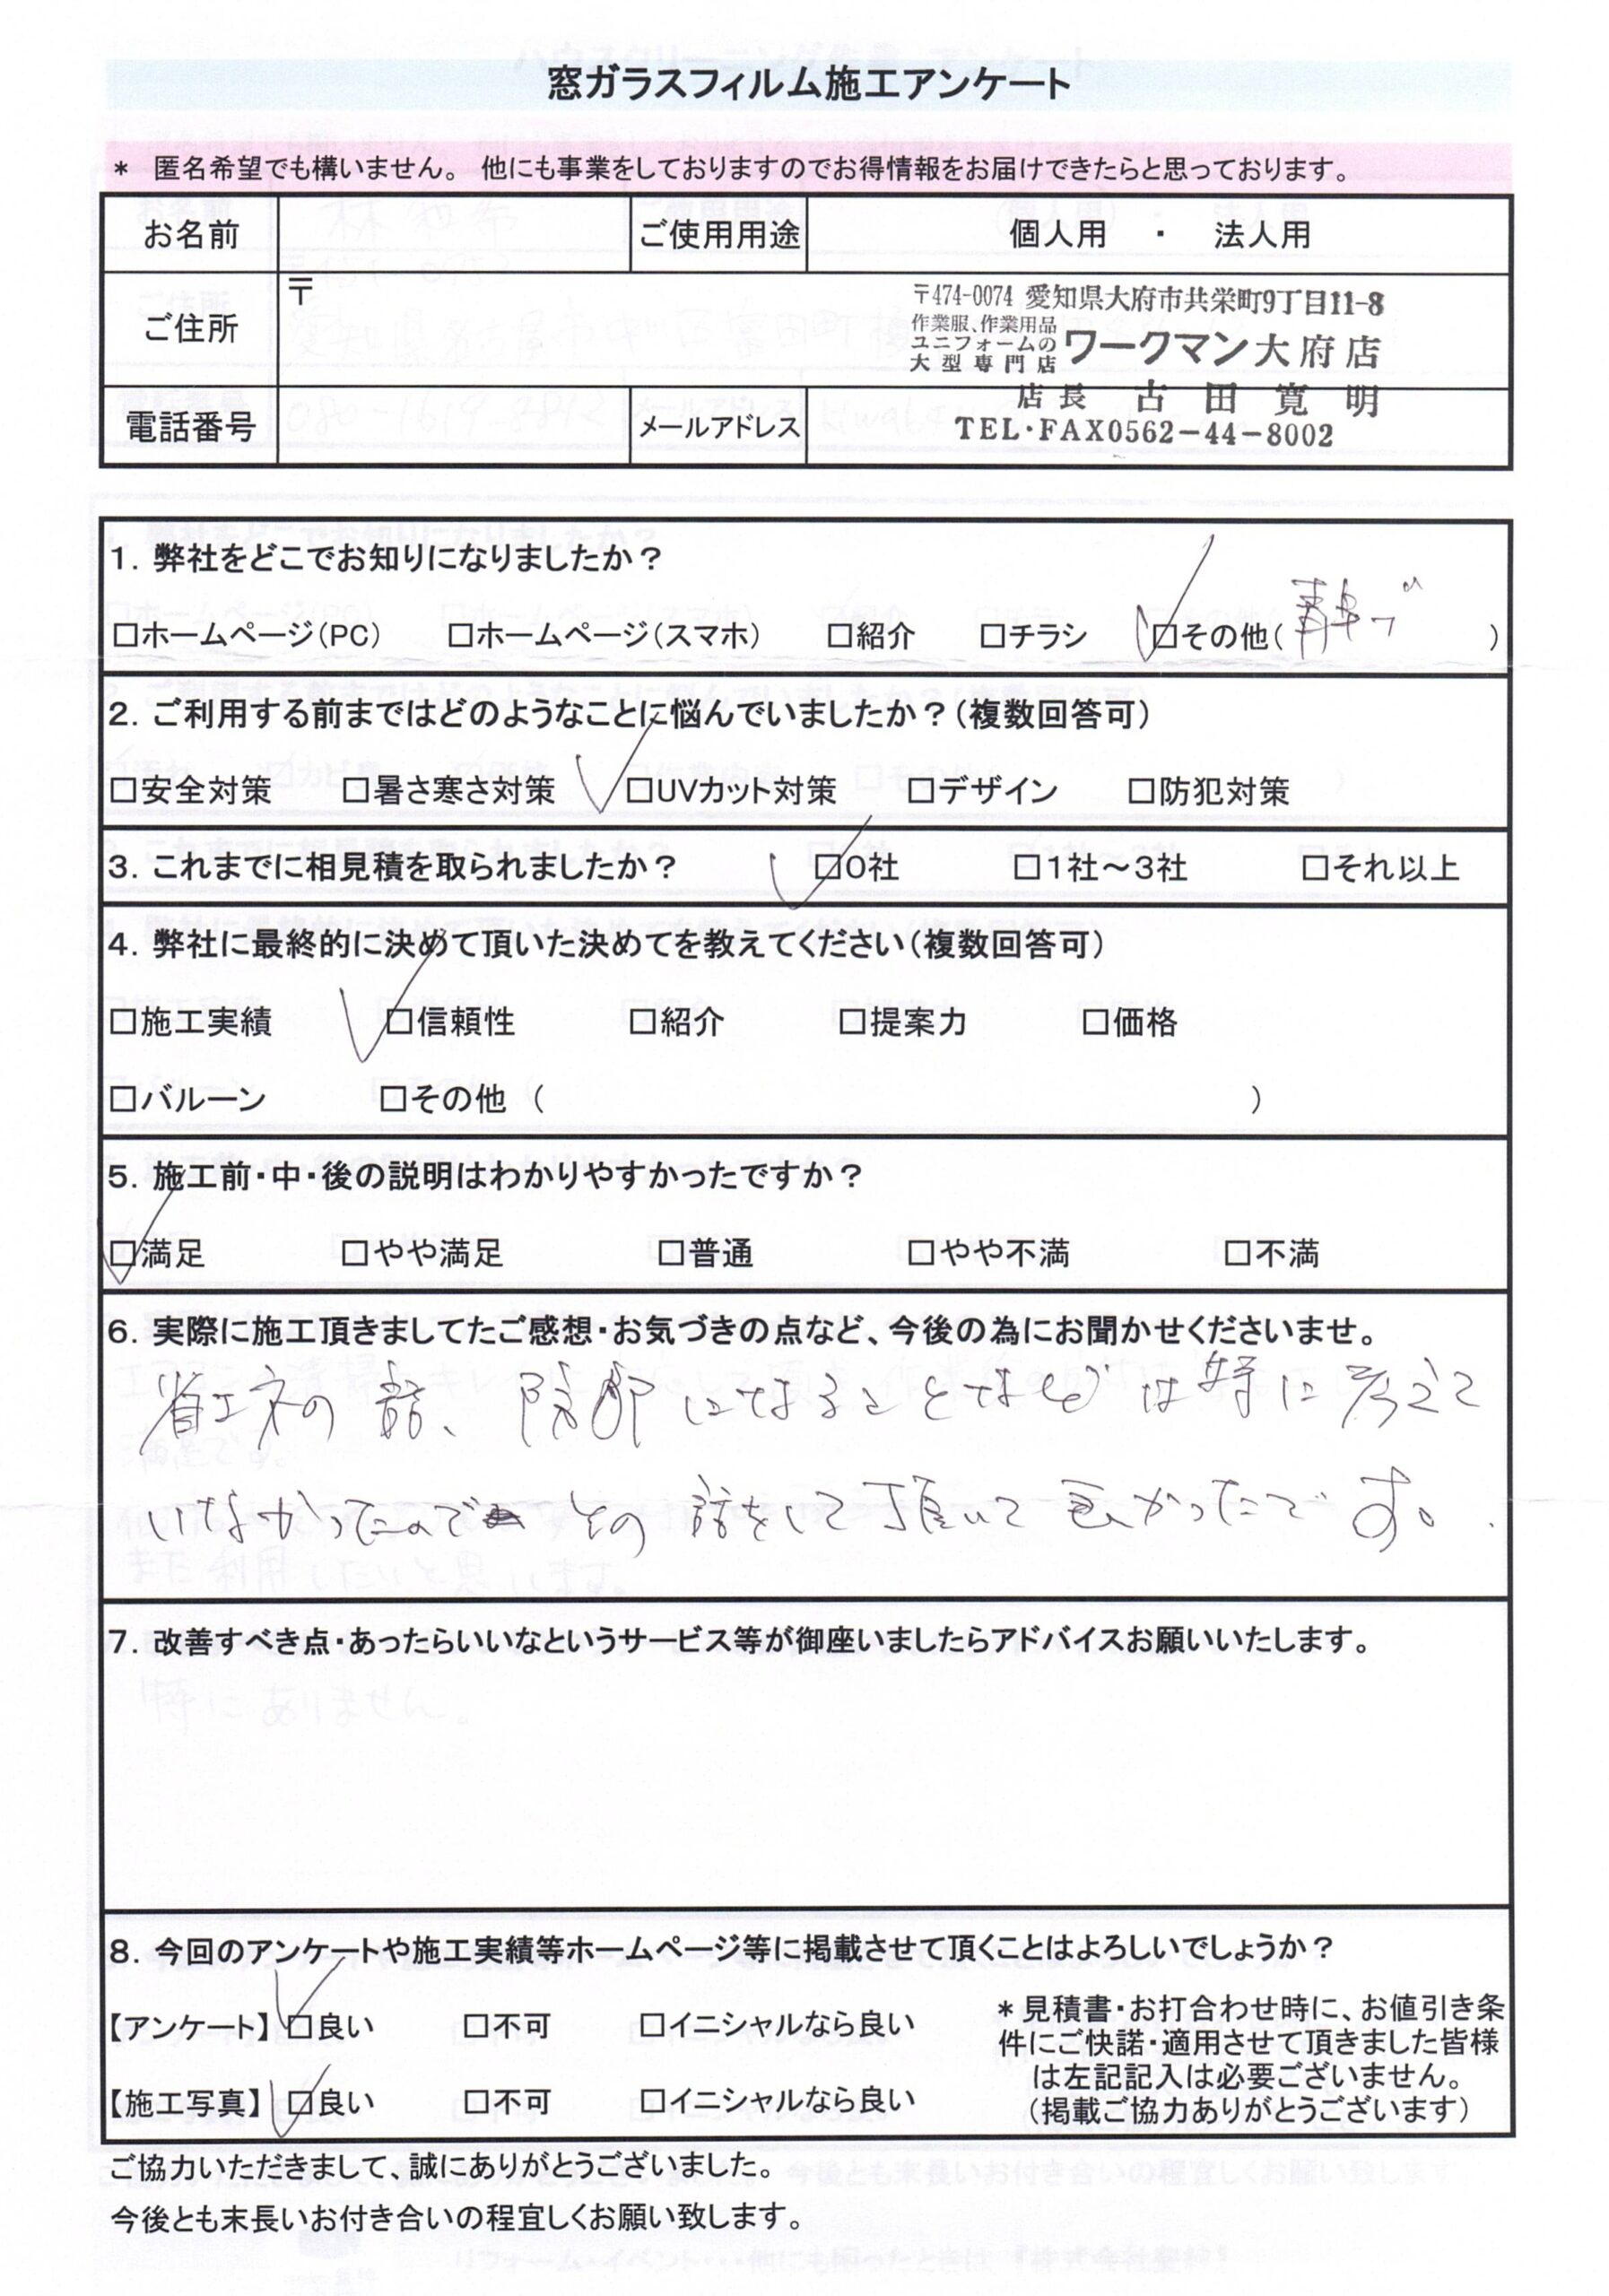 窓ガラスフィルム施工アンケート
* 匿名希望でも構いません。 他にも事業をしておりますのでお得情報をお届けできたらと思っております。
お名前 ご使用用途 個人用 ・ 法人用
ご住所 〒
〒474-0074 愛知県大府市共栄町9丁目11-8
作業服、作業用品
ユニフォームの
大型専門店
ワークマン大府店
店長 古田寛明
電話番号 メールアドレス
TEL・FAX0562-44-8002
1. 弊社をどこでお知りになりましたか？
□ホームページ(PC) □ホームページ(スマホ) □紹介 □チラシ ☑その他( )
2. ご利用する前まではどのようなことに悩んでいましたか？(複数回答可)
□安全対策 □暑さ寒さ対策 ☑UVカット対策 □デザイン □防犯対策
3. これまでに相見積を取られましたか？ ☑0社 □1社～3社 □それ以上
4. 弊社に最終的に決めて頂いた決めてを教えてください(複数回答可)
□施工実績 ☑信頼性 □紹介 □提案力 □価格
□バルーン □その他 ( )
5. 施工前・中・後の説明はわかりやすかったですか？
☑満足 □やや満足 □普通 □やや不満 □不満
6. 実際に施工頂きましてたご感想・お気づきの点など、今後の為にお聞かせくださいませ。
省エネの話、防 になることなどは特に考えて
いなかったので その話をして頂いて良かったです。
7. 改善すべき点・あったらいいなというサービス等が御座いましたらアドバイスお願いいたします。
8. 今回のアンケートや施工実績等ホームページ等に掲載させて頂くことはよろしいでしょうか？
【アンケート】☑良い □不可 □イニシャルなら良い
【施工写真】☑良い □不可 □イニシャルなら良い
* 見積書・お打合わせ時に、お値引き条
件にご快諾・適用させて頂きました皆様
は左記記入は必要ございません。
(掲載ご協力ありがとうございます)
ご協力いただきまして、誠にありがとうございました。
今後とも末長いお付き合いの程宜しくお願い致します。